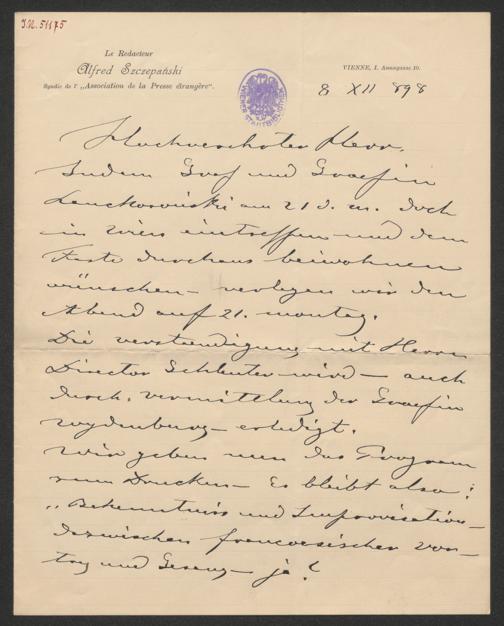 J.N. 51175
Le Redacteur
Alfred Szczepański
Syndic de l' „Association de la Presse étrangère".
VIENNE, I. Annagasse 10.
WIENER STADTBIBLIOTHEK
8 XII 898
Hochverehrter Herr.
Indem Graf und Graefin
Lanckoroński am 21 d. M. doch
in Wien eintreffen und dem
Feste durchaus beiwohnen
wünschen – verlegen wir den
Abend auf 21. Montag.
Die verstendigung mit Herrn
Director Schlenter wird – auch
durch vermittlung der Graefin
Wydenburg – erledigt.
Wir geben nun das Program
zum Drucken – Es bleibt also:
„Bekenntniss und Improvisation –
dazwischen francoesischer Vor-
trag und Gesang – ja!